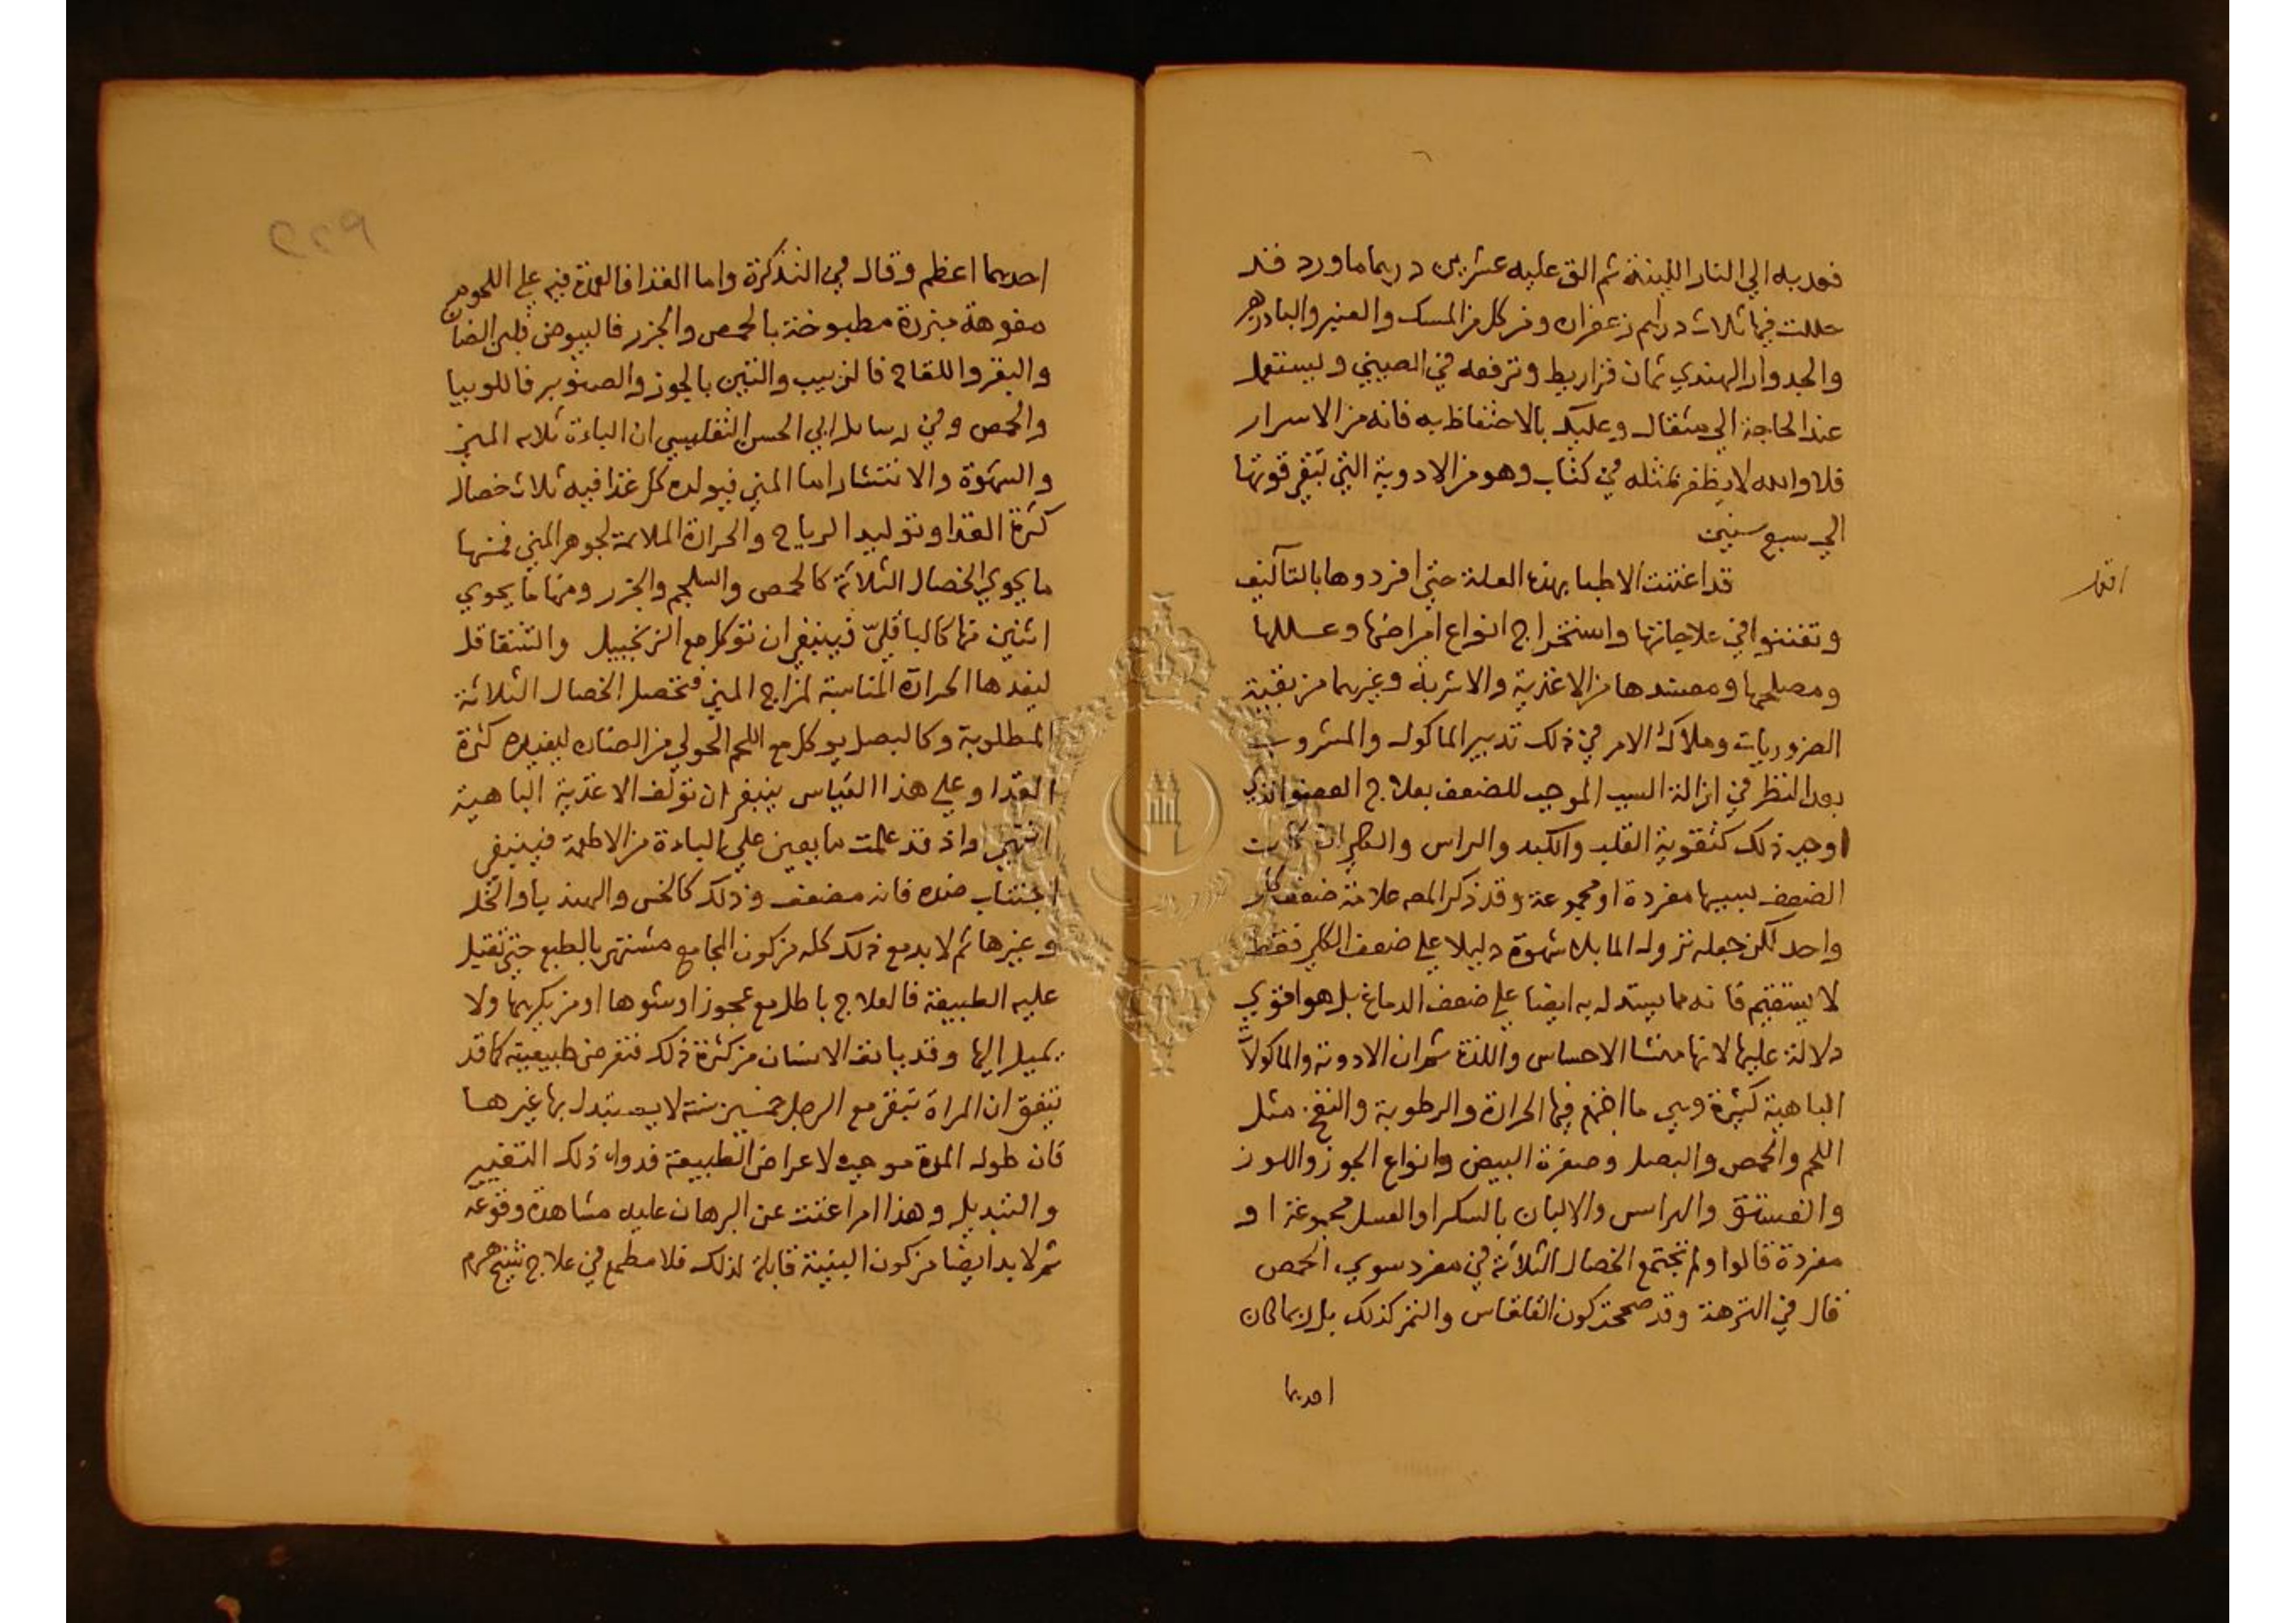 فعد به الي النار اللينة ثم الق عليه عشرين درهما ماورد قد
حللت فيها ثلاث دراهم زعفران ومن كل من المسك والعنبر والبادزهر
والجدوار الهندي ثمان قراريط وترفعه في الصيني ويستعمل
عند الحاجة الي مثقال وعليك بالاحتفاظ به فانه من الاسرار
فلا والله لا يظفر بمثله في كتاب وهو من الادوية التي تبقي قوتها
الي سبع سنين
قد اعتنت الاطبا بهذه العلة حتي افردوها بالتآليف
وتفننوا في علاجاتها واستخراج انواع امراضها وعللها
ومصلحها ومفسدها من الاغذية والاشربة وغيرهما من بقية
الضروريات وملاك الامر في ذلك تدبير الماكول والمشروب
بعد النظر في ازالة السبب الموجب للضعف بعلاج العضو الذي
اوجب ذلك كتقوية القلب والكبد والراس والكلي ان كانت
الضعف بسببها مفردة او مجموعة وقد ذكر المص علامة ضعف كل
واحد لكن جعله نزول الما بلا شهوة دليلا علي ضعف الكلي فقط
لا يستقيم فانه مما يستدل به ايضا علي ضعف الدماغ بل هو اقوي
دلالة عليها لانها منشا الاحساس واللذة ثم ان الادوية والماكولات
الباهية كثيرة وهي ما اجتمع فيها الحرارة والرطوبة والنفخ مثل
اللحم والحمص والبصل وصفرة البيض وانواع الجوز واللوز
والفستق والهراس والالبان بالسكر او العسل مجموعة او
مفردة قالوا ولم تجتمع الخصال الثلاثة في مفرد سوي الحمص
قال في النزهة وقد صححت كون القلقاس والتمر كذلك بل ربما كان
احديهما
اقول
احديهما اعظم وقال في التذكرة واما الغذا فالعمدة فيه علي اللحوم
مفوهة مبزرة مطبوخة بالحمص والجزر فالبيوض فلبن الضان
والبقر واللقاح فالزبيب والتين بالجوز والصنوبر فاللوبيا
والحمص وفي رسايل ابي الحسن التفليسي ان الباءة ثلاثه المني
والشهوة والانتشار اما المني فيولده كل غذا فيه ثلاث خصال
كثرة الغذا وتوليد الرياح والحرارة الملائمة لجوهر المني فمنها
ما يحوي الخصال الثلاثة كالحمص والسلجم والجزر ومنها ما يحوي
اثنين منها كالباقليّ فينبغي ان توكل مع الزنجبيل والشقاقل
ليفدها الحرارة المناسبة لمزاج المني فتحصل الخصال الثلاثة
المطلوبة وكالبصل يوكل مع اللحم الحولي من الضان ليفيده كثرة
الغذا وعلي هذا القياس ينبغي ان تولف الاغذية الباهية
انتهي واذ قد علمت ما يعين علي الباءة من الاطعمة فينبغي
اجتناب ضده فانه مضعف وذلك كالخس والهندبا والخل
وغيرها ثم لا بد مع ذلك كله من كون المجامع مشتهي بالطبع حتي تقبل
عليه الطبيعة فالعلاج باطل مع عجوز او شوها او من يكرهها ولا
يميل اليها وقد يانف الانسان من كثرة ذلك فتعرض طبيعته كما قد
يتفق ان المراة تبقي مع الرجل خمسين سنة لا يستبدل بها غيرها
فان طول المدة موجبة لاعراض الطبيعة فدواء ذلك التغيير
والتبديل وهذا امر اغنت عن البرهان عليه مشاهدة وقوعه
ثم لا بد ايضا من كون البنية قابلة لذلك فلا مطمع في علاج شيخ هرم